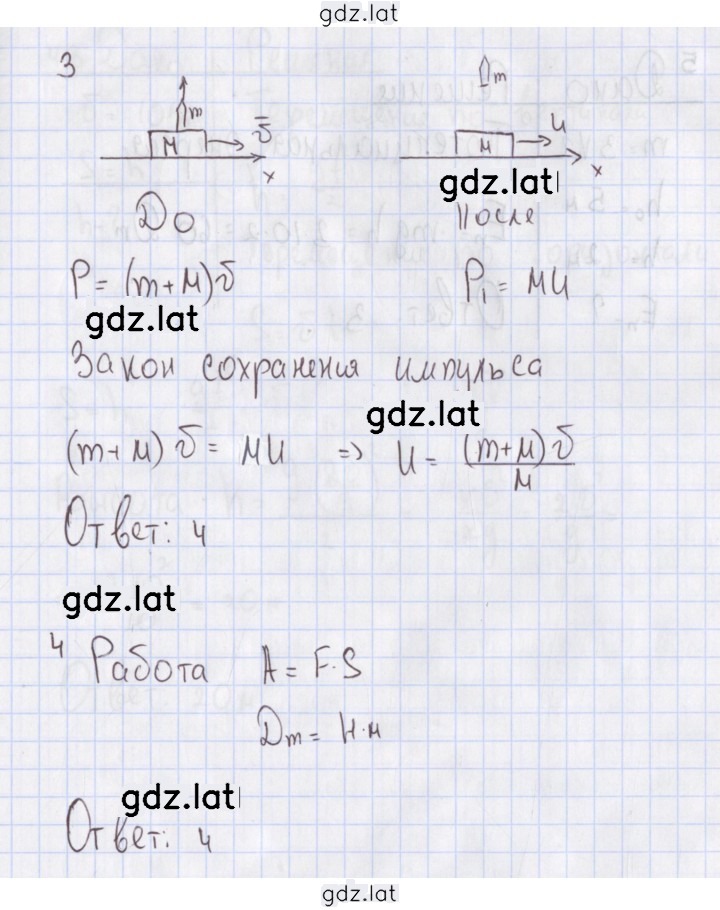 gdz.lat
3
m
m
M
v̄
x
M
u
x
gdz.lat
До
После
P = (m+M)v̄
P₁ = Mu
gdz.lat
Закон сохранения импульса
gdz.lat
(m+M)v̄ = Mu => u = (m+M)v̄ / M
Ответ: 4
gdz.lat
4 Работа A = F·S
Дж = Н·м
gdz.lat
Ответ: 4
gdz.lat